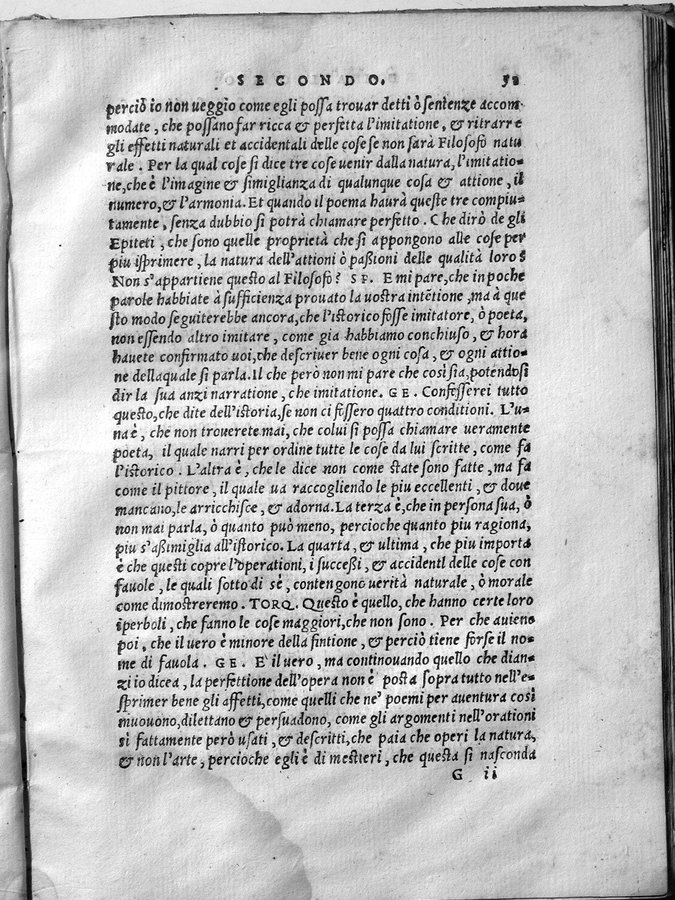 SECONDO. 52
perciò io non ueggio come egli possa trouar detti ò sentenze accom-
modate, che possano far ricca & perfetta l'imitatione, & ritrarre
gli effetti naturali et accidentali delle cose se non sarà Filosofo natu
rale. Per la qual cose si dice tre cose uenir dalla natura, l'imitatio-
ne, che è l'imagine & simiglianza di qualunque cosa & attione, il
numero, & l'armonia. Et quando il poema haurà queste tre compiu-
tamente, senza dubbio si potrà chiamare perfetto. Che dirò de gli
Epiteti, che sono quelle proprietà che si appongono alle cose per
piu isprimere, la natura dell'attioni ò passioni delle qualità loro?
Non s'appartiene questo al Filosofo? SP. E mi pare, che in poche
parole habbiate à sufficienza prouato la uostra intētione, ma à que
sto modo seguiterebbe ancora, che l'istorico fosse imitatore, ò poeta,
non essendo altro imitare, come gia habbiamo conchiuso, & hora
hauete confirmato uoi, che descriuer bene ogni cosa, & ogni attio-
ne della quale si parla. Il che però non mi pare che così sia, potēdosi
dir la sua anzi narratione, che imitatione. GE. Confesserei tutto
questo, che dite dell'istoria, se non ci fissero quattro conditioni. L'u-
na è, che non trouerete mai, che colui si possa chiamare ueramente
poeta, il quale narri per ordine tutte le cose da lui scritte, come fa
l'istorico. L'altra è, che le dice non come state sono fatte, ma fa
come il pittore, il quale ua raccogliendo le piu eccellenti, & doue
mancano, le arricchisce, & adorna. La terza è, che in persona sua, ò
non mai parla, ò quanto può meno, percioche quanto piu ragiona,
piu s'assimiglia all'istorico. La quarta, & ultima, che piu importa
è che questi copre l'operationi, i successi, & accidenti delle cose con
fauole, le quali sotto di sè, contengono uerità naturale, ò morale
come dimostreremo. TORQ. Questo è quello, che hanno certe loro
iperboli, che fanno le cose maggiori, che non sono. Per che auiene
poi, che il uero è minore della fintione, & perciò tiene forse il no-
me di fauola. GE. E' il uero, ma continouando quello che dian-
zi io dicea, la perfettione dell'opera non è posta sopra tutto nell'e-
sprimer bene gli affetti, come quelli che ne' poemi per auentura così
muouono, dilettano & persuadono, come gli argomenti nell'orationi
sì fattamente però usati, & descritti, che paia che operi la natura,
& non l'arte, percioche egli è di mestieri, che questa si nasconda
G ii